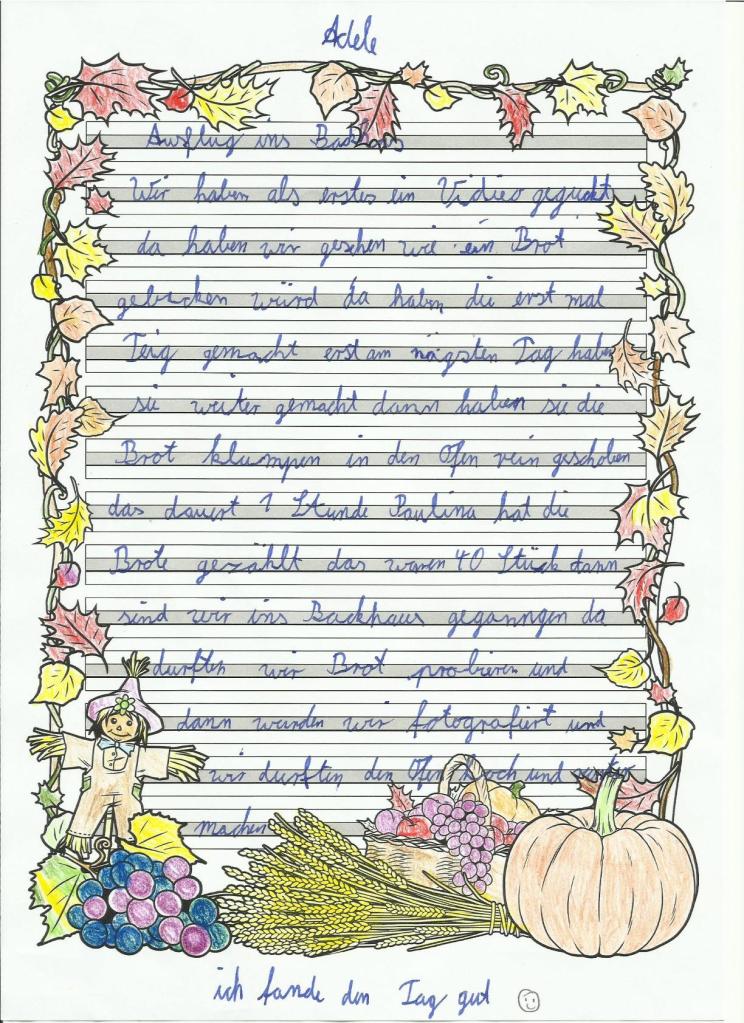 Adele
Ausflug ins Backhaus
Wir haben als erstes ein Vidieo geguckt
da haben wir gesehen wie ein Brot
gebacken würd da haben die erst mal
Teig gemacht erst am nägsten Tag haben
sie weiter gemacht dann haben sie die
Brot klumpen in den Ofen rein geschoben
das dauert 1 Stunde Paulina hat die
Brote gezählt das waren 40 Stück dann
sind wir ins Backhaus geganngen da
durften wir Brot probieren und
dann wurden wir fotografiert und
wir durften den Ofen hoch und runter
machen
ich fande den Tag gut